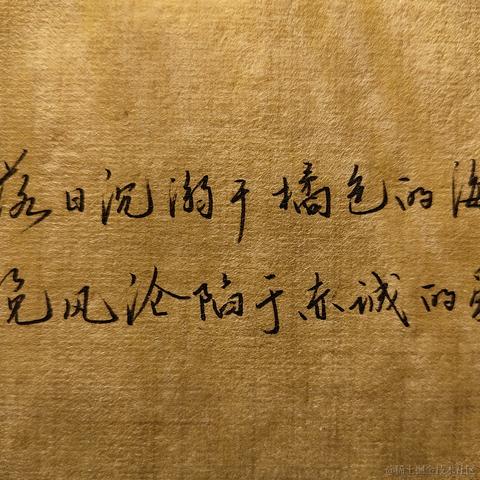 落日沉溺于橘色的海
晚风沦陷于赤诚的爱
@稀土掘金技术社区